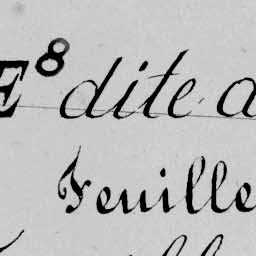 E⁸ dite a
Feuille